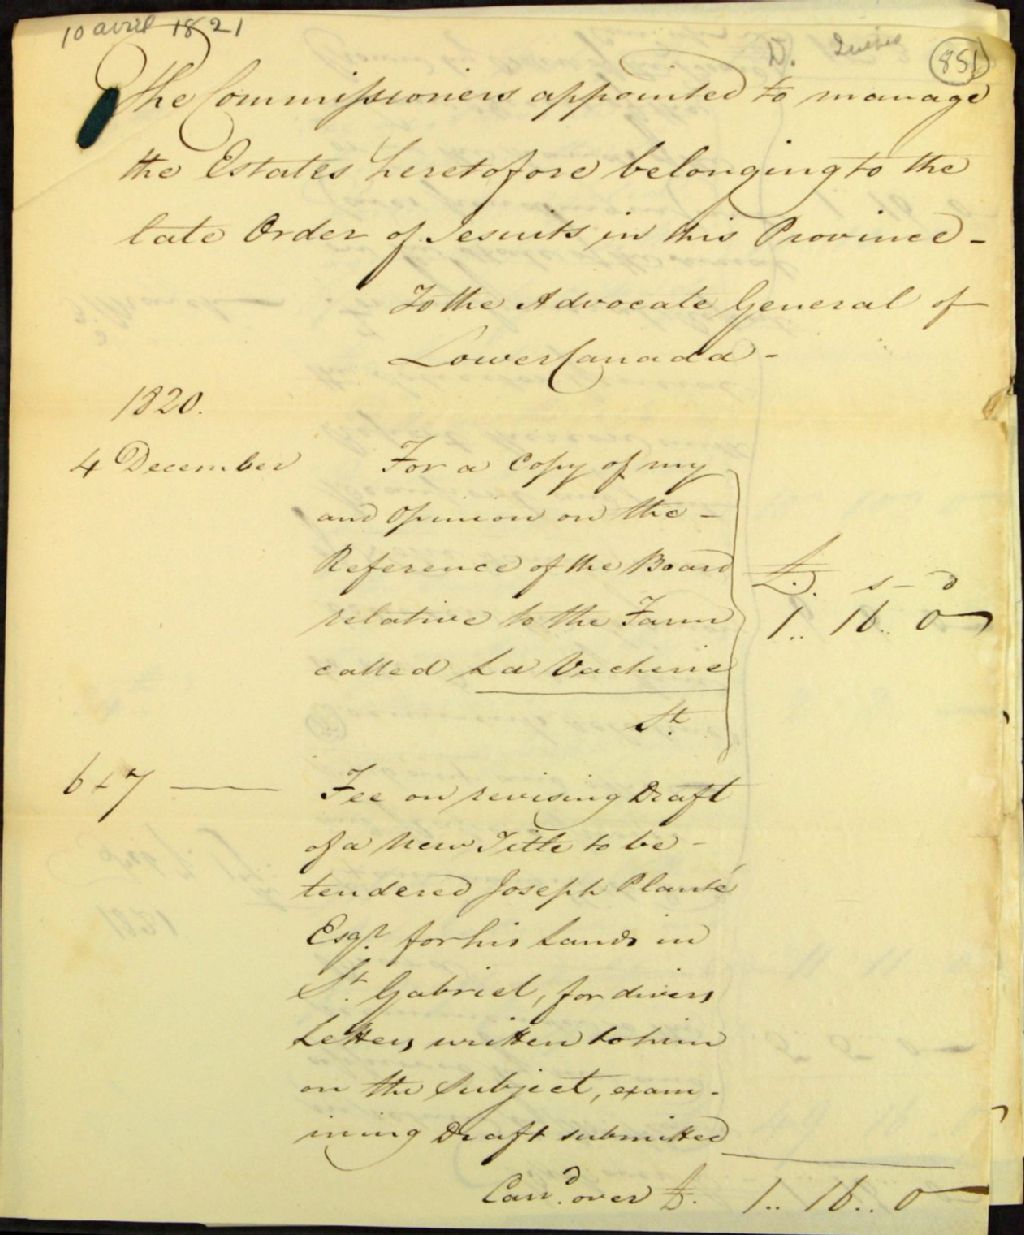 10 avril 1821
D. Quebec
851
The Commissioners appointed to manage
the Estates heretofore belonging to the
late Order of Jesuits in this Province -
To the Advocate General of
Lower Canada -
1820.
4 December For a Copy of my
and Opinion on the -
Reference of the Board
relative to the Farm
called La Vacherie
£. s d
1.. 16.. 0
St.
6 & 7 —— Fee on revising Draft
of a New Title to be -
tendered Joseph Planté
Esqr. for his Lands in
St. Gabriel, for divers
Letters written to him
on the Subject, exam-
ining Draft submitted
Carrd. over £. 1.. 16.. 0